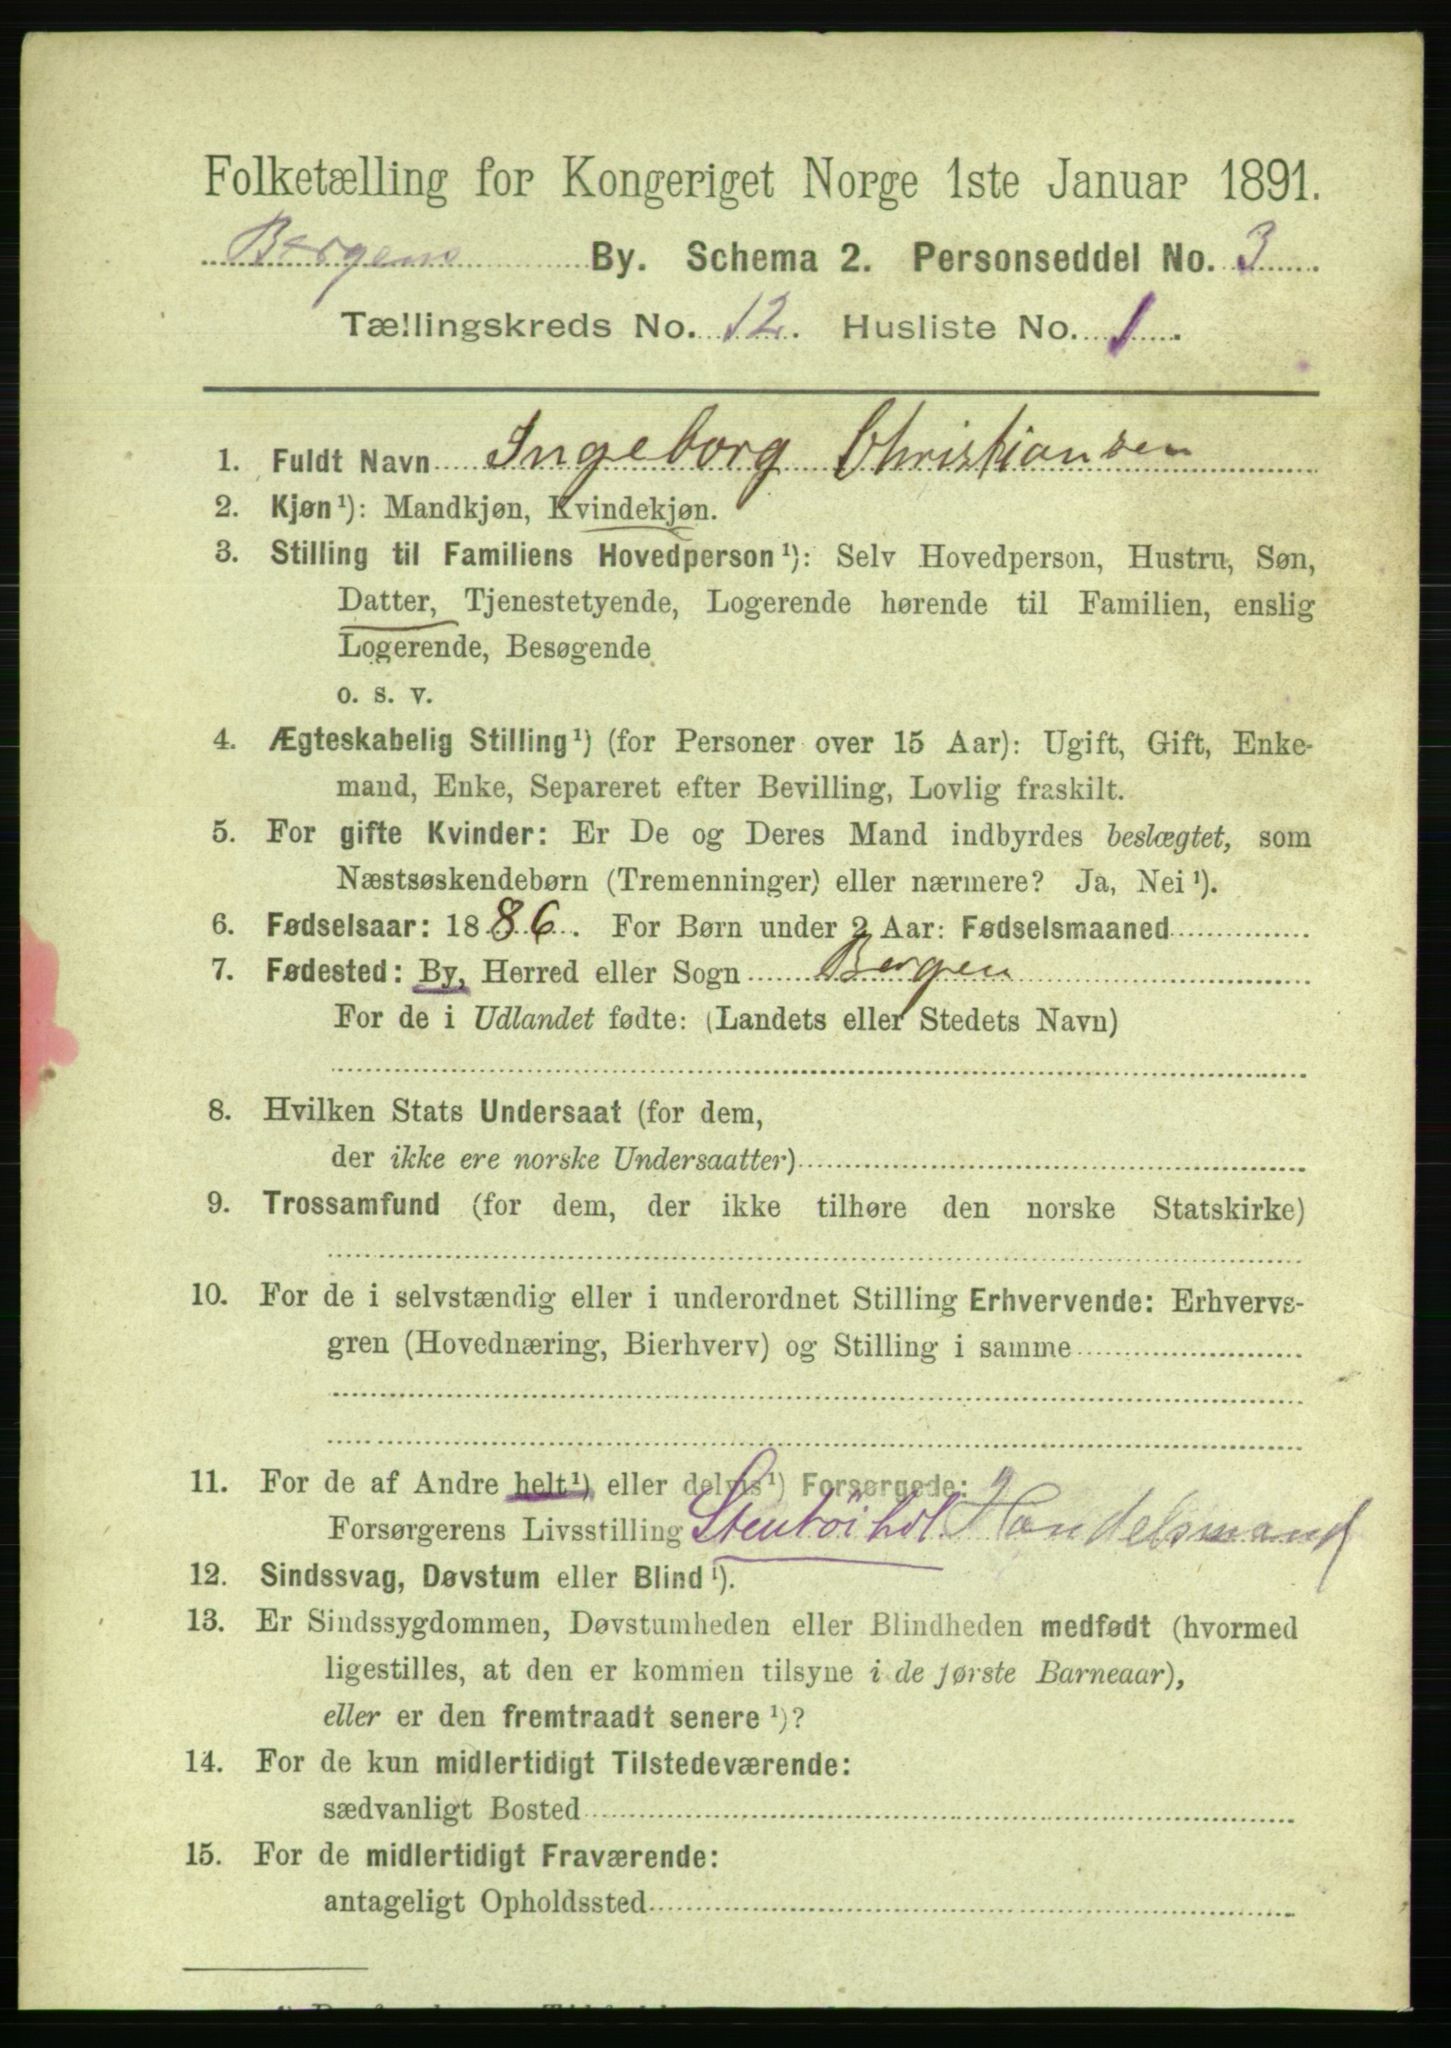 Folketælling for Kongeriget Norge 1ste Januar 1891.
Bergens By. Schema 2. Personseddel No. 3
Tællingskreds No. 12. Husliste No. 1.
1. Fuldt Navn Ingeborg Christiansen
2. Kjøn¹): Mandkjøn, Kvindekjøn.
3. Stilling til Familiens Hovedperson¹): Selv Hovedperson, Hustru, Søn,
Datter, Tjenestetyende, Logerende hørende til Familien, enslig
Logerende, Besøgende
o. s. v.
4. Ægteskabelig Stilling¹) (for Personer over 15 Aar): Ugift, Gift, Enke-
mand, Enke, Separeret efter Bevilling, Lovlig fraskilt.
5. For gifte Kvinder: Er De og Deres Mand indbyrdes beslægtet, som
Næstsøskendebørn (Tremenninger) eller nærmere? Ja, Nei¹).
6. Fødselsaar: 1886. For Børn under 2 Aar: Fødselsmaaned
7. Fødested: By, Herred eller Sogn Bergen
For de i Udlandet fødte: (Landets eller Stedets Navn)
8. Hvilken Stats Undersaat (for dem,
der ikke ere norske Undersaatter)
9. Trossamfund (for dem, der ikke tilhøre den norske Statskirke)
10. For de i selvstændig eller i underordnet Stilling Erhvervende: Erhvervs-
gren (Hovednæring, Bierhverv) og Stilling i samme
11. For de af Andre helt¹) eller delvis¹) Forsørgede:
Forsørgerens Livsstilling Stentöihdl. Handelsmand
12. Sindssvag, Døvstum eller Blind¹).
13. Er Sindssygdommen, Døvstumheden eller Blindheden medfødt (hvormed
ligestilles, at den er kommen tilsyne i de første Barneaar),
eller er den fremtraadt senere¹)?
14. For de kun midlertidigt Tilstedeværende:
sædvanligt Bosted
15. For de midlertidigt Fraværende:
antageligt Opholdssted